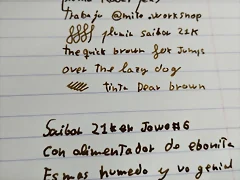 Trabajo @mito.workshop
pluma saibor 21K
the quick brown fox Jumps
over the lazy dog
tinta Dear brown
Saibor 21K en Jowo#6
Con alimentador de ebonita
Es mas humedo y va genial